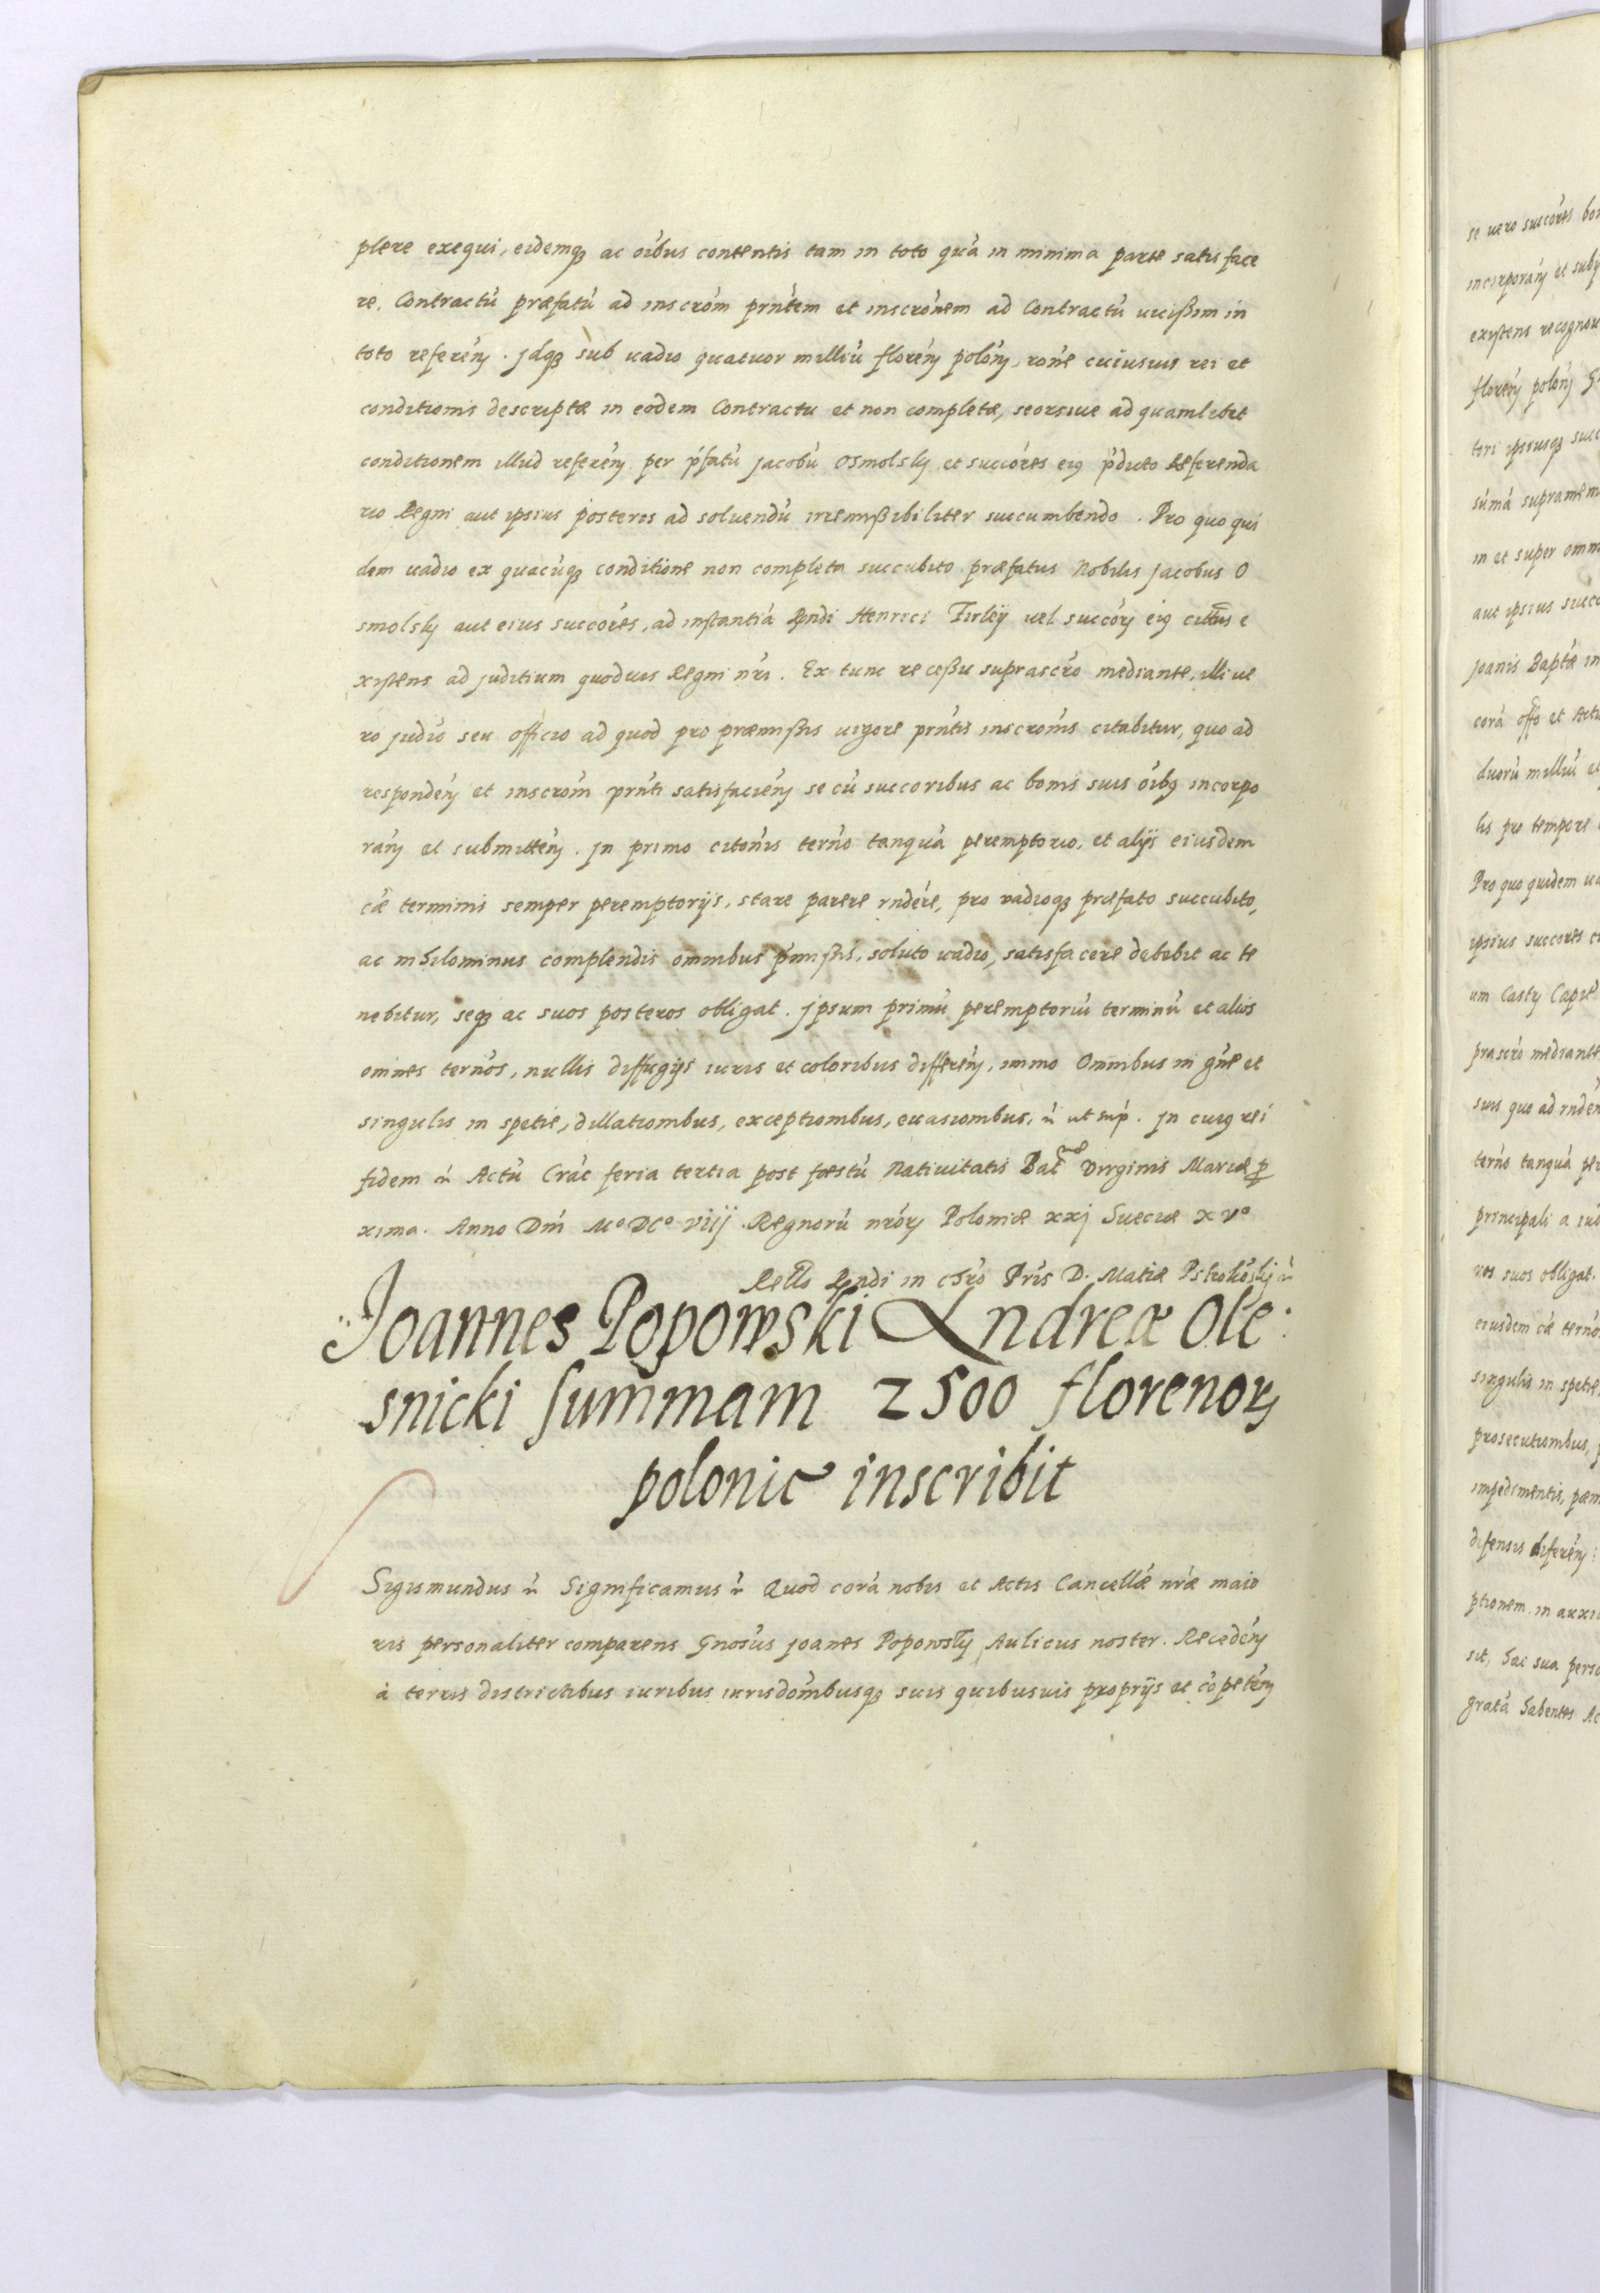 plere exequi, eidemq3 ac oîbus contentis tam in toto quã in minima parte satis face
re. Contractũ præfatũ ad inscrõm prñtem et inscrõnem ad Contractũ vicißim in
toto referẽn. Jdq3 sub uadio quatuor milliũ florẽn polõn, rõne cuiusuis rei et
conditionis descriptæ in eodem Contractu et non completæ, seorsiue ad quamlibet
conditionem illud referẽn per p̃fatũ Jacobũ Osmolsky et succõres eiq p̃dicto Referenda
rio Regni aut ipsius posteris ad soluendũ irremißibiliter succumbendo. Pro quo qui
dem uadio ex quacũq3 conditione non completa succubito præfatus Nobilis Jacobus O
smolsky aut eius succõres, ad instantiã Rndi Henrici Firleÿ uel succõrj eiq citatus e
xistens ad juditium quoduis Regni nr̃i. Ex tunc receßu suprascr̃o mediante, illi ue
ro judio seu officio ad quod pro præmißis uigore prñtis inscrõnis citabitur, quo ad
respondẽn et inscrõni prñti satisfaciẽn se cũ succoribus ac bonis suis oîbq incorpo
rãn et submittẽn. Jn primo citõnis terño tanquã peremptorio, et alijs eiusdem
cæ̃ terminis semper peremptorijs, stare parere rndẽre, pro vadioq3 præfato succubito,
ac nihilominus complendis omnibus p̃mißis, soluto uadio, satisfacere debebit ac te
nebitur, seq3 ac suos posteros obligat. Jpsum primũ peremptoriũ terminũ et alios
omnes terños, nullis diffugijs iuris et coloribus differẽn, immo Omnibus in gñe et
singulis in spetie, dillationibus, exceptionibus, euasionibus, r̃ ut sup̃. Jn cuiq rei
fidem r̃ Actũ Crãc feria tertia post fæstũ Natiuitatis Batmæ Virginis Mariæ p
xima. Anno Dñi M° DC° viij Regnorũ nrõrj Poloniæ xxj Sueciæ xv°
Rello Rndi in chr̃o Pr̃is D. Matiæ Pstrokõsky r̃
Joannes Popowski Andreæ Ole
snicki summam 2500 florenorj
polonic inscribit
Sigismundus r̃ Significamus r̃ Quod corã nobis et Actis Cancellæ̃ nr̃æ maio
ris personaliter comparens Gnosũs Joanes Popowsky Aulicus noster. Recedẽn
à terris districtibus iuribus iurisdõnibusq3 suis quibusuis proprijs et cõpetẽn
se uero succõres
incorporãn et
existens recognou
florẽn polõn
tori ipsiusq3 succ
sũmã supramem
in et super omn
aut ipsius succ
Joanis Baptæ in
corã offo et Actis
duorũ milliũ et
lis pro tempore
Pro quo quidem ua
ipsius succores ci
um Castr Capit
prascr̃o mediante
suis quo ad rnden
terño tanquã per
principali a iud
ros suos obligat.
eiusdem cæ̃ terño
singulis in spetie,
prosecutionibus,
impedimentis,
difensis diferẽn
ptionem in auxi
sit, hac sua pers
gratã habentes Ac